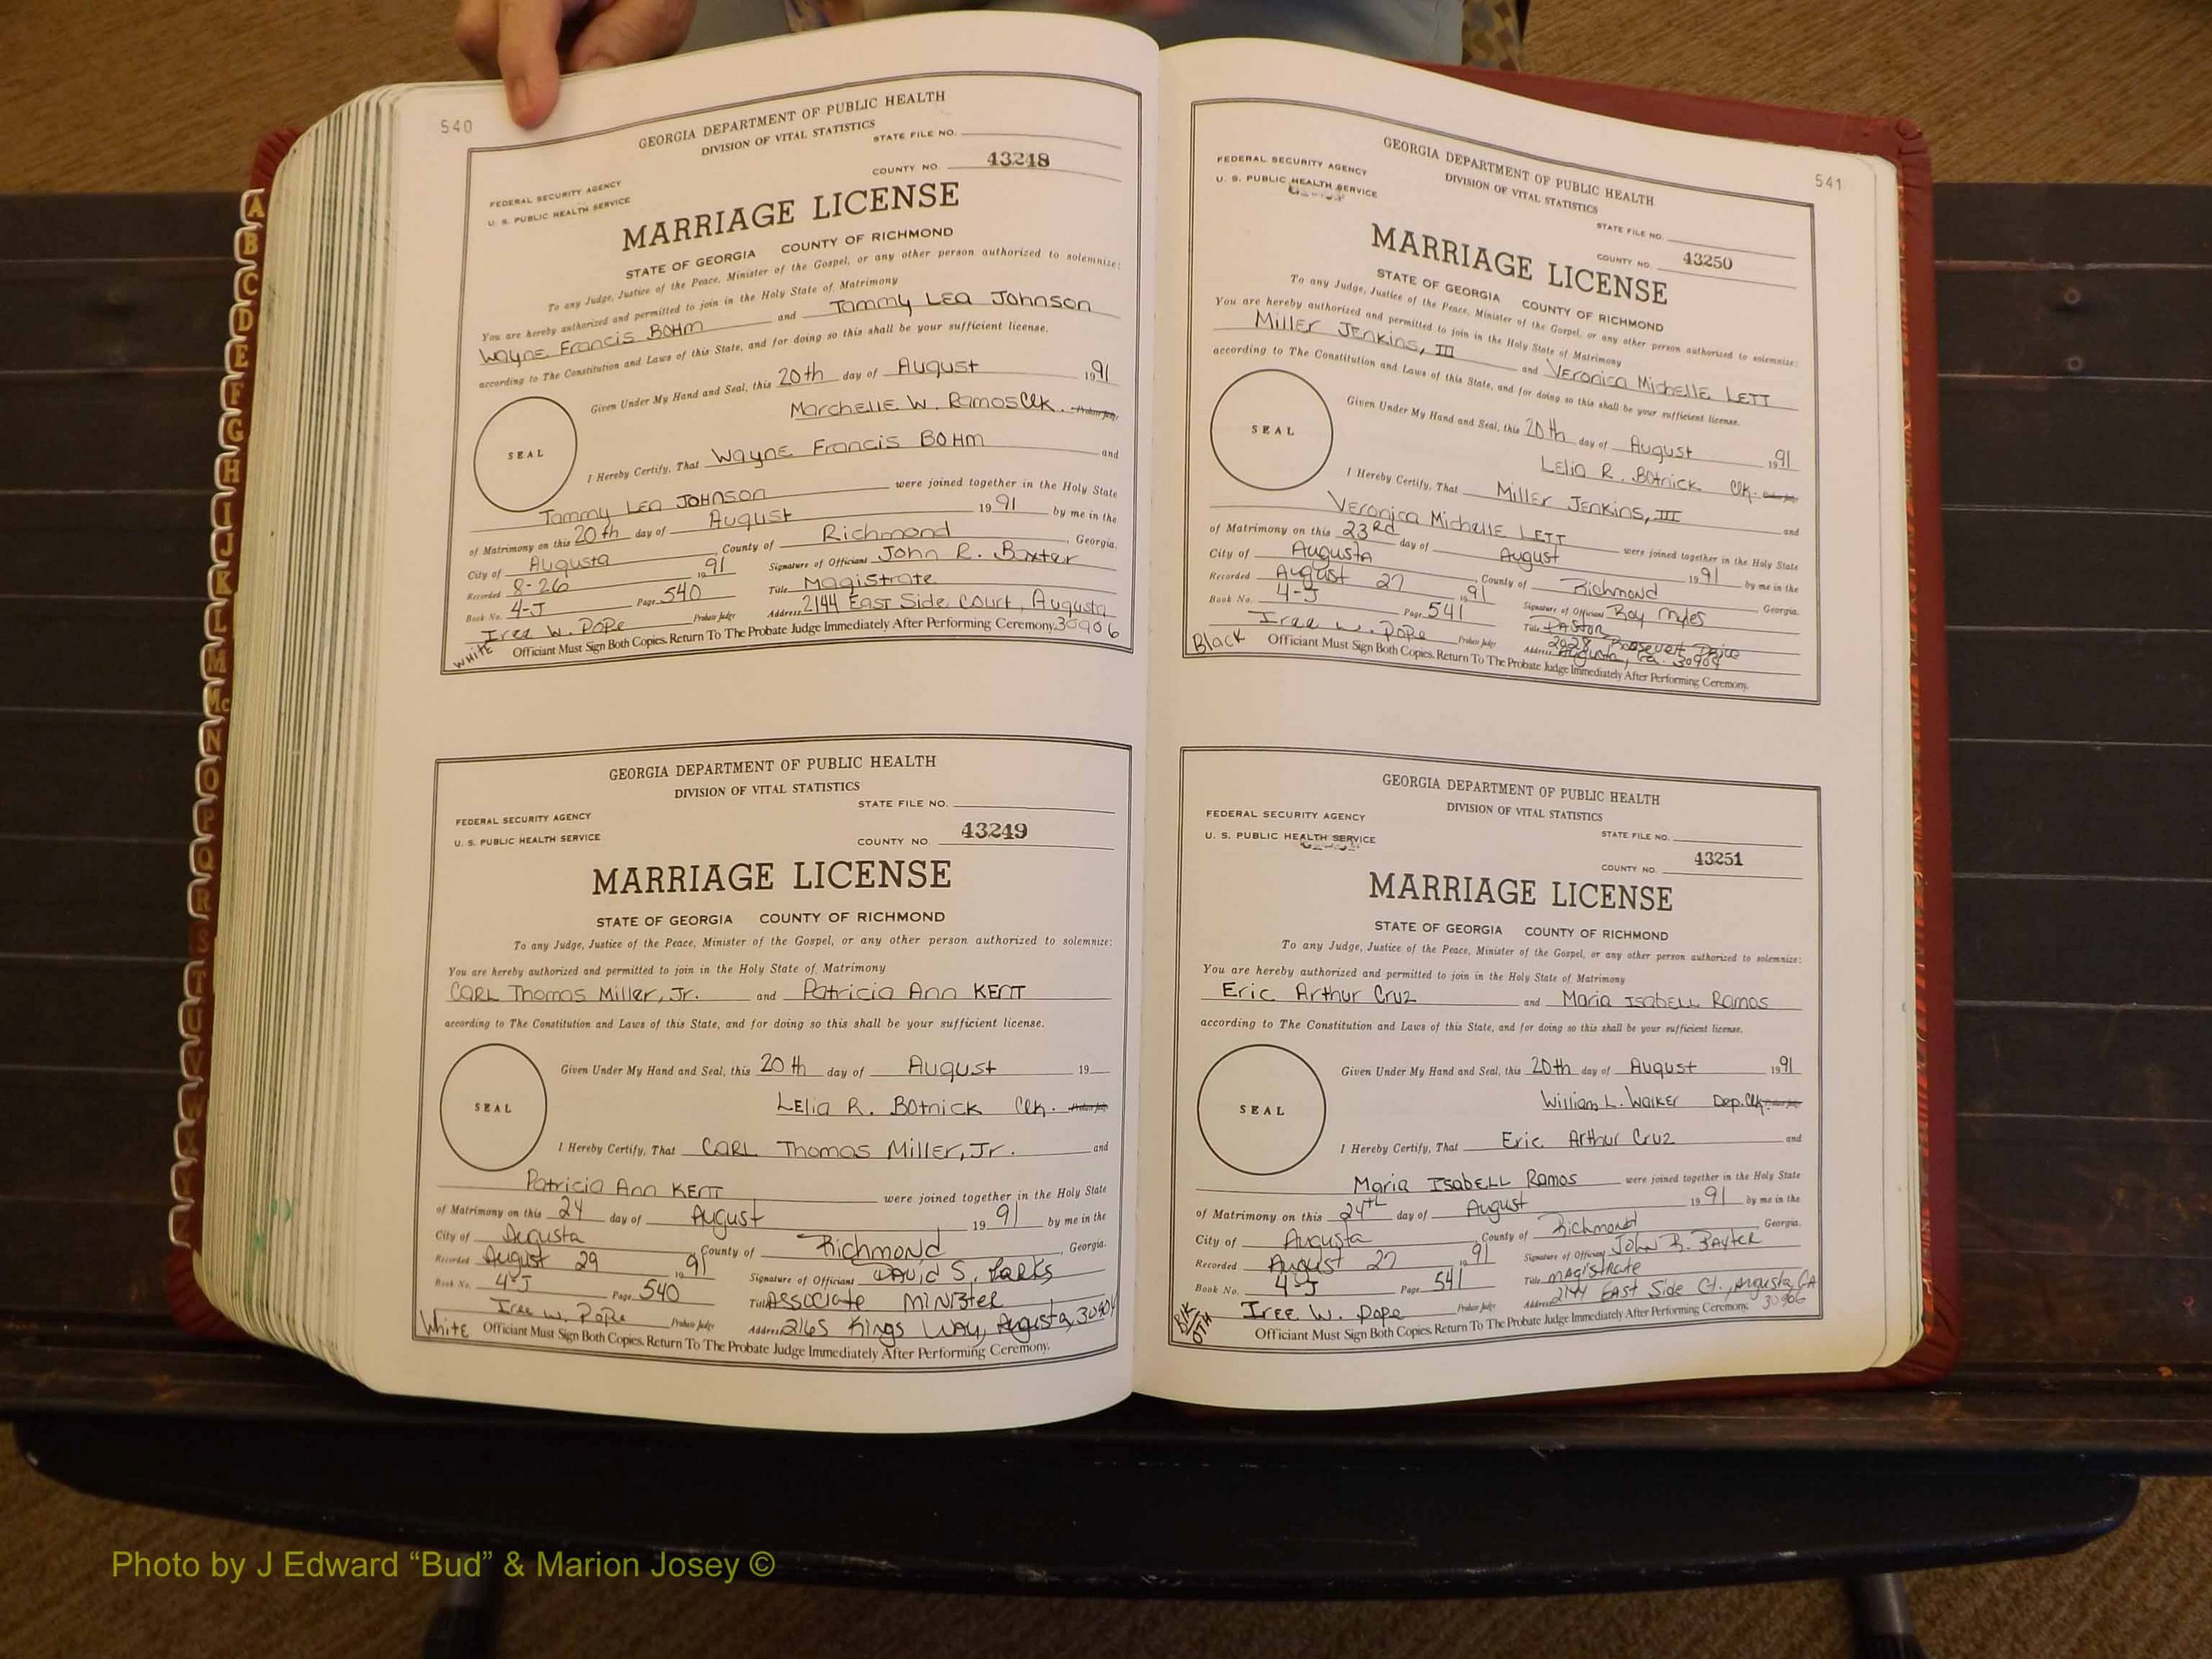 540
GEORGIA DEPARTMENT OF PUBLIC HEALTH
DIVISION OF VITAL STATISTICS
STATE FILE NO.
COUNTY NO. 43248
FEDERAL SECURITY AGENCY
U. S. PUBLIC HEALTH SERVICE
MARRIAGE LICENSE
STATE OF GEORGIA COUNTY OF RICHMOND
To any Judge, Justice of the Peace, Minister of the Gospel, or any other person authorized to solemnize:
You are hereby authorized and permitted to join in the Holy State of Matrimony
Wayne Francis BOHM and Tammy LEA JOHNSON
according to The Constitution and Laws of this State, and for doing so this shall be your sufficient license.
Given Under My Hand and Seal, this 20th day of August 1991
Marchelle W. Ramos Clk. Probate Judge
SEAL
I Hereby Certify, That Wayne Francis BOHM and
Tammy LEA JOHNSON were joined together in the Holy State
of Matrimony on this 20th day of August 1991 by me in the
City of Augusta, County of Richmond, Georgia.
Recorded 8-26 1991 Signature of Officiant John R. Baxter
Book No. 4-J Page 540 Title Magistrate
Iree W. Pope Probate Judge Address 2144 East Side Court, Augusta 30906
White Officiant Must Sign Both Copies. Return To The Probate Judge Immediately After Performing Ceremony.
GEORGIA DEPARTMENT OF PUBLIC HEALTH
DIVISION OF VITAL STATISTICS
STATE FILE NO.
FEDERAL SECURITY AGENCY
U. S. PUBLIC HEALTH SERVICE
COUNTY NO. 43249
MARRIAGE LICENSE
STATE OF GEORGIA COUNTY OF RICHMOND
To any Judge, Justice of the Peace, Minister of the Gospel, or any other person authorized to solemnize:
You are hereby authorized and permitted to join in the Holy State of Matrimony
CARL Thomas Miller, Jr. and Patricia Ann KENT
according to The Constitution and Laws of this State, and for doing so this shall be your sufficient license.
Given Under My Hand and Seal, this 20th day of August 19
LELIA R. Botnick Clk. Probate Judge
SEAL
I Hereby Certify, That CARL Thomas Miller, Jr. and
Patricia Ann KENT were joined together in the Holy State
of Matrimony on this 24 day of August 1991 by me in the
City of Augusta, County of Richmond, Georgia.
Recorded August 29 1991 Signature of Officiant David S. Parks
Book No. 4-J Page 540 Title Associate Minister
Iree W. Pope Probate Judge Address 2165 Kings Way, Augusta, 30904
White Officiant Must Sign Both Copies. Return To The Probate Judge Immediately After Performing Ceremony.
541
GEORGIA DEPARTMENT OF PUBLIC HEALTH
DIVISION OF VITAL STATISTICS
FEDERAL SECURITY AGENCY
U. S. PUBLIC HEALTH SERVICE
STATE FILE NO.
COUNTY NO. 43250
MARRIAGE LICENSE
STATE OF GEORGIA COUNTY OF RICHMOND
To any Judge, Justice of the Peace, Minister of the Gospel, or any other person authorized to solemnize:
You are hereby authorized and permitted to join in the Holy State of Matrimony
Miller Jenkins, III and Veronica Michelle LETT
according to The Constitution and Laws of this State, and for doing so this shall be your sufficient license.
Given Under My Hand and Seal, this 20th day of August 1991
LELIA R. Botnick Clk. Probate Judge
SEAL
I Hereby Certify, That Miller Jenkins, III and
Veronica Michelle LETT were joined together in the Holy State
of Matrimony on this 23rd day of August 1991 by me in the
City of Augusta, County of Richmond Georgia.
Recorded August 27 1991 Signature of Officiant Roy Myles
Book No. 4-J Page 541 Title Pastor
Iree W. Pope Probate Judge Address 2928 Roosevelt Drive
Augusta, Ga. 30904
Black Officiant Must Sign Both Copies. Return To The Probate Judge Immediately After Performing Ceremony.
GEORGIA DEPARTMENT OF PUBLIC HEALTH
DIVISION OF VITAL STATISTICS
FEDERAL SECURITY AGENCY
U. S. PUBLIC HEALTH SERVICE
STATE FILE NO.
COUNTY NO. 43251
MARRIAGE LICENSE
STATE OF GEORGIA COUNTY OF RICHMOND
To any Judge, Justice of the Peace, Minister of the Gospel, or any other person authorized to solemnize:
You are hereby authorized and permitted to join in the Holy State of Matrimony
Eric Arthur Cruz and Maria ISABELL Ramos
according to The Constitution and Laws of this State, and for doing so this shall be your sufficient license.
Given Under My Hand and Seal, this 20th day of August 1991
William L. Walker Dep. Clk. Probate Judge
SEAL
I Hereby Certify, That Eric Arthur Cruz and
Maria ISABELL Ramos were joined together in the Holy State
of Matrimony on this 24th day of August 1991 by me in the
City of Augusta, County of Richmond Georgia.
Recorded August 27 1991 Signature of Officiant John R. Baxter
Book No. 4-J Page 541 Title Magistrate
Iree W. Pope Probate Judge Address 2144 East Side Ct., Augusta, GA 30906
Blk/Oth Officiant Must Sign Both Copies. Return To The Probate Judge Immediately After Performing Ceremony.
A
B
C
D
E
F
G
H
I
J
K
L
M
Mc
N
O
P
Q
R
S
T
Photo by J Edward “Bud” & Marion Josey ©